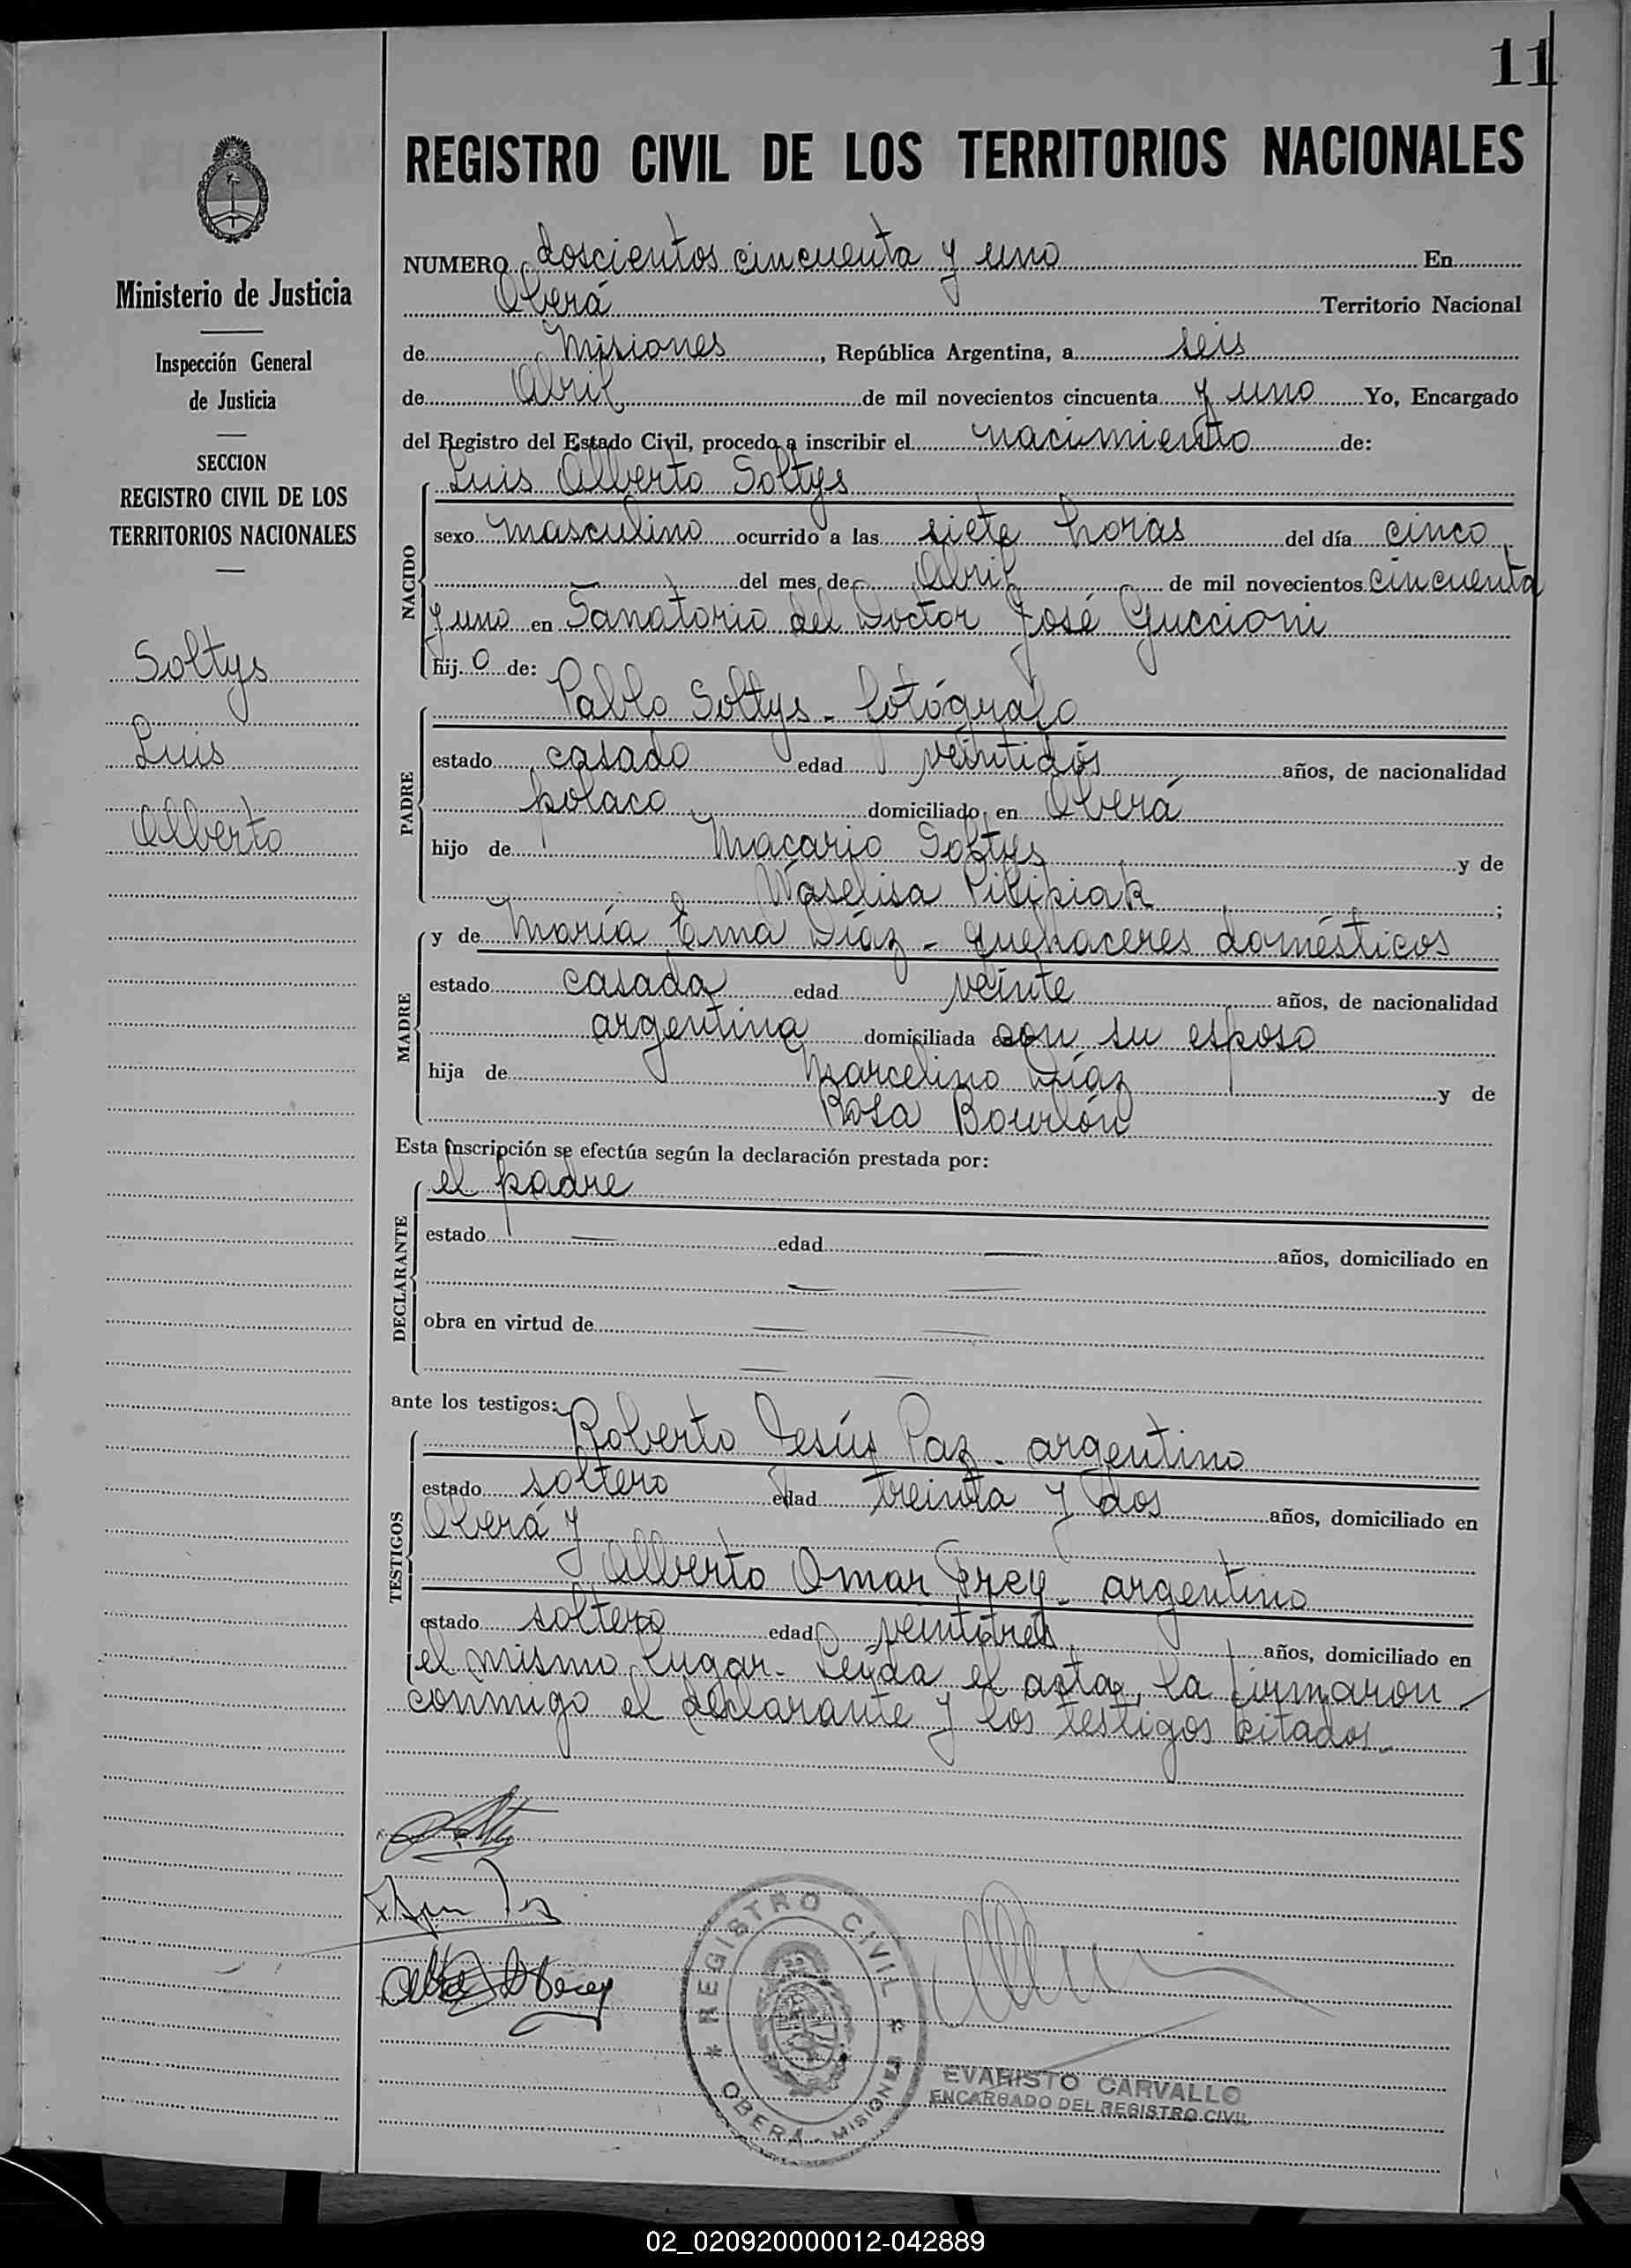 11
REGISTRO CIVIL DE LOS TERRITORIOS NACIONALES
Ministerio de Justicia
Inspección General
de Justicia
SECCION
REGISTRO CIVIL DE LOS
TERRITORIOS NACIONALES
Soltys
Luis
Alberto
NUMERO doscientos cincuenta y uno En
Oberá Territorio Nacional
de Misiones, República Argentina, a seis
de Abril de mil novecientos cincuenta y uno Yo, Encargado
del Registro del Estado Civil, procedo a inscribir el nacimiento de:
NACIDO
Luis Alberto Soltys
sexo masculino ocurrido a las siete horas del día cinco
del mes de Abril de mil novecientos cincuenta
y uno en Sanatorio del Doctor José Guccioni
hij o de:
PADRE
Pablo Soltys - fotógrafo
estado casado edad veintidós años, de nacionalidad
polaco domiciliado en Oberá
hijo de Macario Soltys y de
Waselisa Pilipiak ;
MADRE
y de María Ema Díaz - quehaceres domésticos
estado casada edad veinte años, de nacionalidad
argentina domiciliada con su esposo
hija de Marcelino Díaz y de
Rosa Bourlón
Esta inscripción se efectúa según la declaración prestada por:
DECLARANTE
el padre
estado — edad — años, domiciliado en
— —
obra en virtud de — —
— —
ante los testigos:
TESTIGOS
Roberto Jesús Paz - argentino
estado soltero edad treinta y dos años, domiciliado en
Oberá y
Alberto Omar Prey - argentino
estado soltero edad veintitrés años, domiciliado en
el mismo lugar. Leyda el acta, la firmaron
conmigo el declarante y los testigos citados.
REGISTRO CIVIL
* OBERÁ - MISIONES *
EVARISTO CARVALLO
ENCARGADO DEL REGISTRO CIVIL
02_020920000012-042889